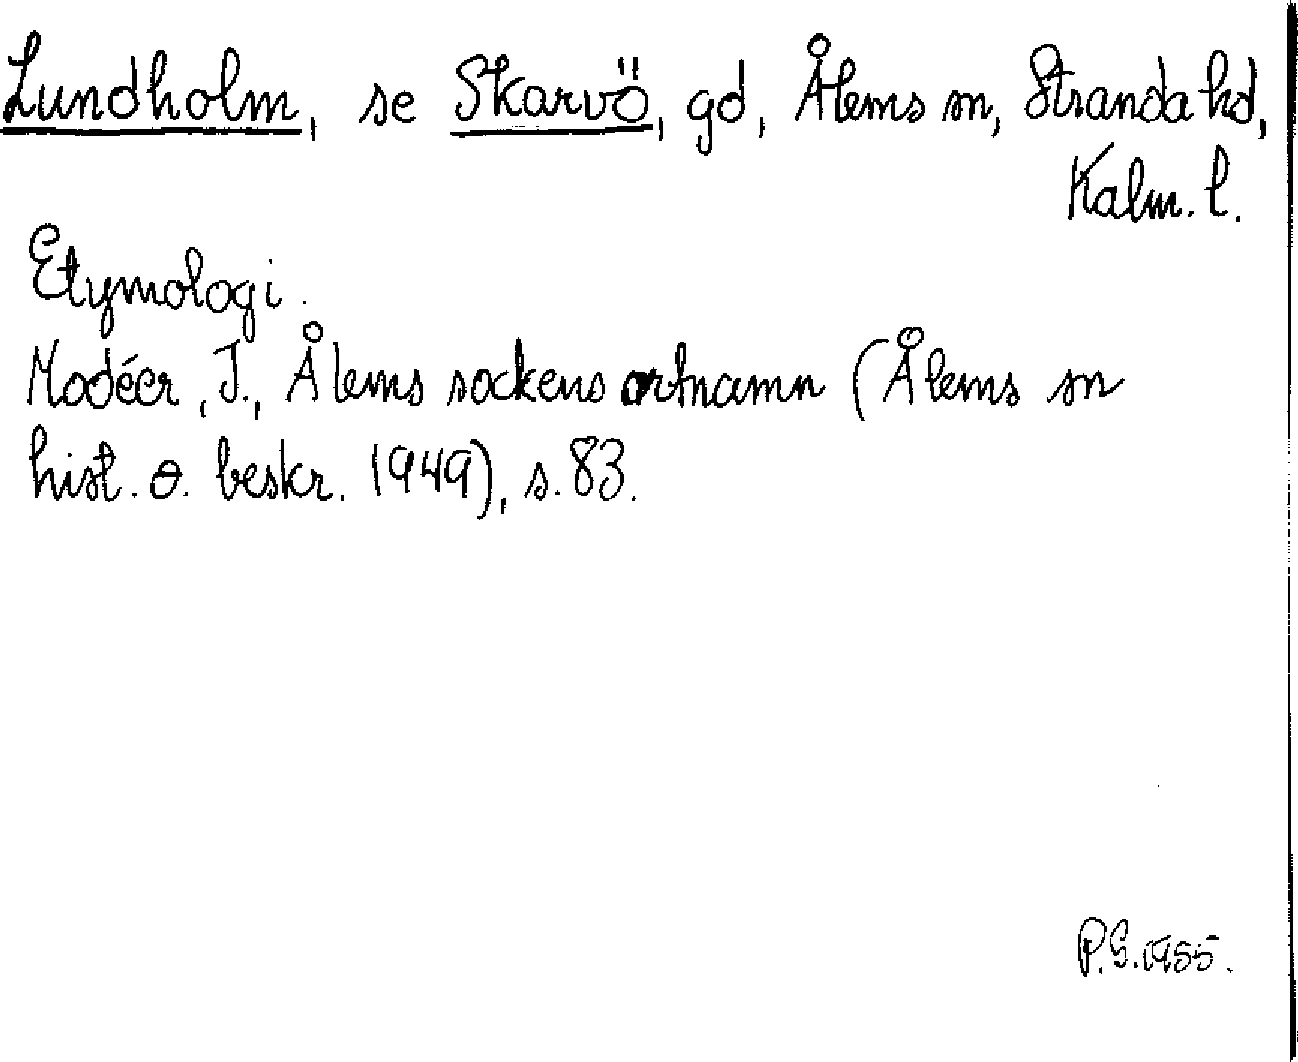 Lundholm, se Skarvö, gd, Ålems sn, Stranda hd,
Kalm. l.
Etymologi.
Modéer, J., Ålems sockens ortnamn (Ålems sn
hist. o. beskr. 1949), s. 83.
P.G. 1955.